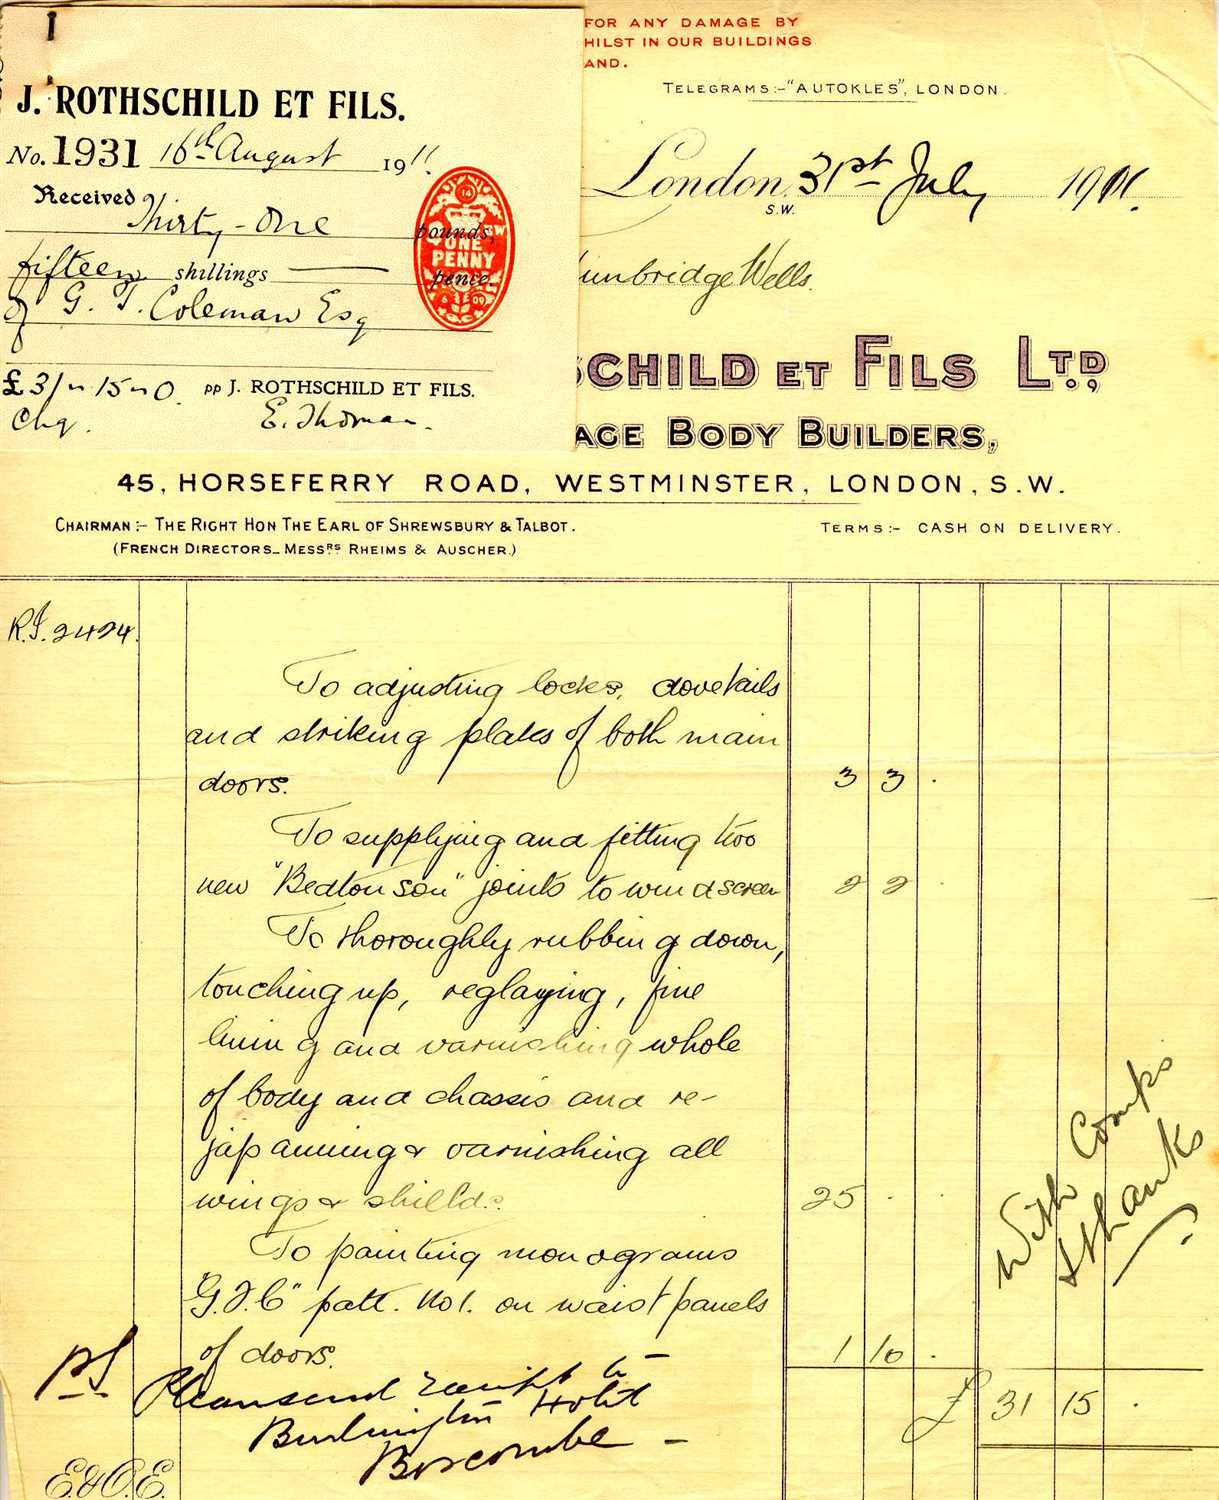 J. ROTHSCHILD ET FILS.
No. 1931 16th August 1911
Received Thirty-One pounds,
fifteen shillings pence.
of G. J. Coleman Esq
£31 " 15 " 0. pp J. ROTHSCHILD ET FILS.
Chq. E. Thoman.
ONE
PENNY
FOR ANY DAMAGE BY
HILST IN OUR BUILDINGS
AND.
TELEGRAMS:- "AUTOKLES", LONDON.
London, S.W. 31st July 1911.
unbridge Wells.
SCHILD ET FILS LTD.,
AGE BODY BUILDERS,
45, HORSEFERRY ROAD, WESTMINSTER, LONDON, S.W.
CHAIRMAN:- THE RIGHT HON THE EARL OF SHREWSBURY & TALBOT.
(FRENCH DIRECTORS_ MESSRS RHEIMS & AUSCHER.)
TERMS:- CASH ON DELIVERY.
R.J. 2424.
To adjusting locks, dovetails
and striking plates of both main
doors. 3 3 .
To supplying and fitting two
new "Bedtonson" joints to windscreen 2 2 .
To thoroughly rubbing down,
touching up, reglazing, fine
lining and varnishing whole
of body and chassis and re-
japanning & varnishing all
wings & shields. 25 . .
To painting monograms
"G.J.C" patt. No 1. on waist panels
of doors. 1 10 .
£ 31 15 .
With Comps
& thanks
PS Please send receipt to
Burlington Hotel
Boscombe
E. & O. E.